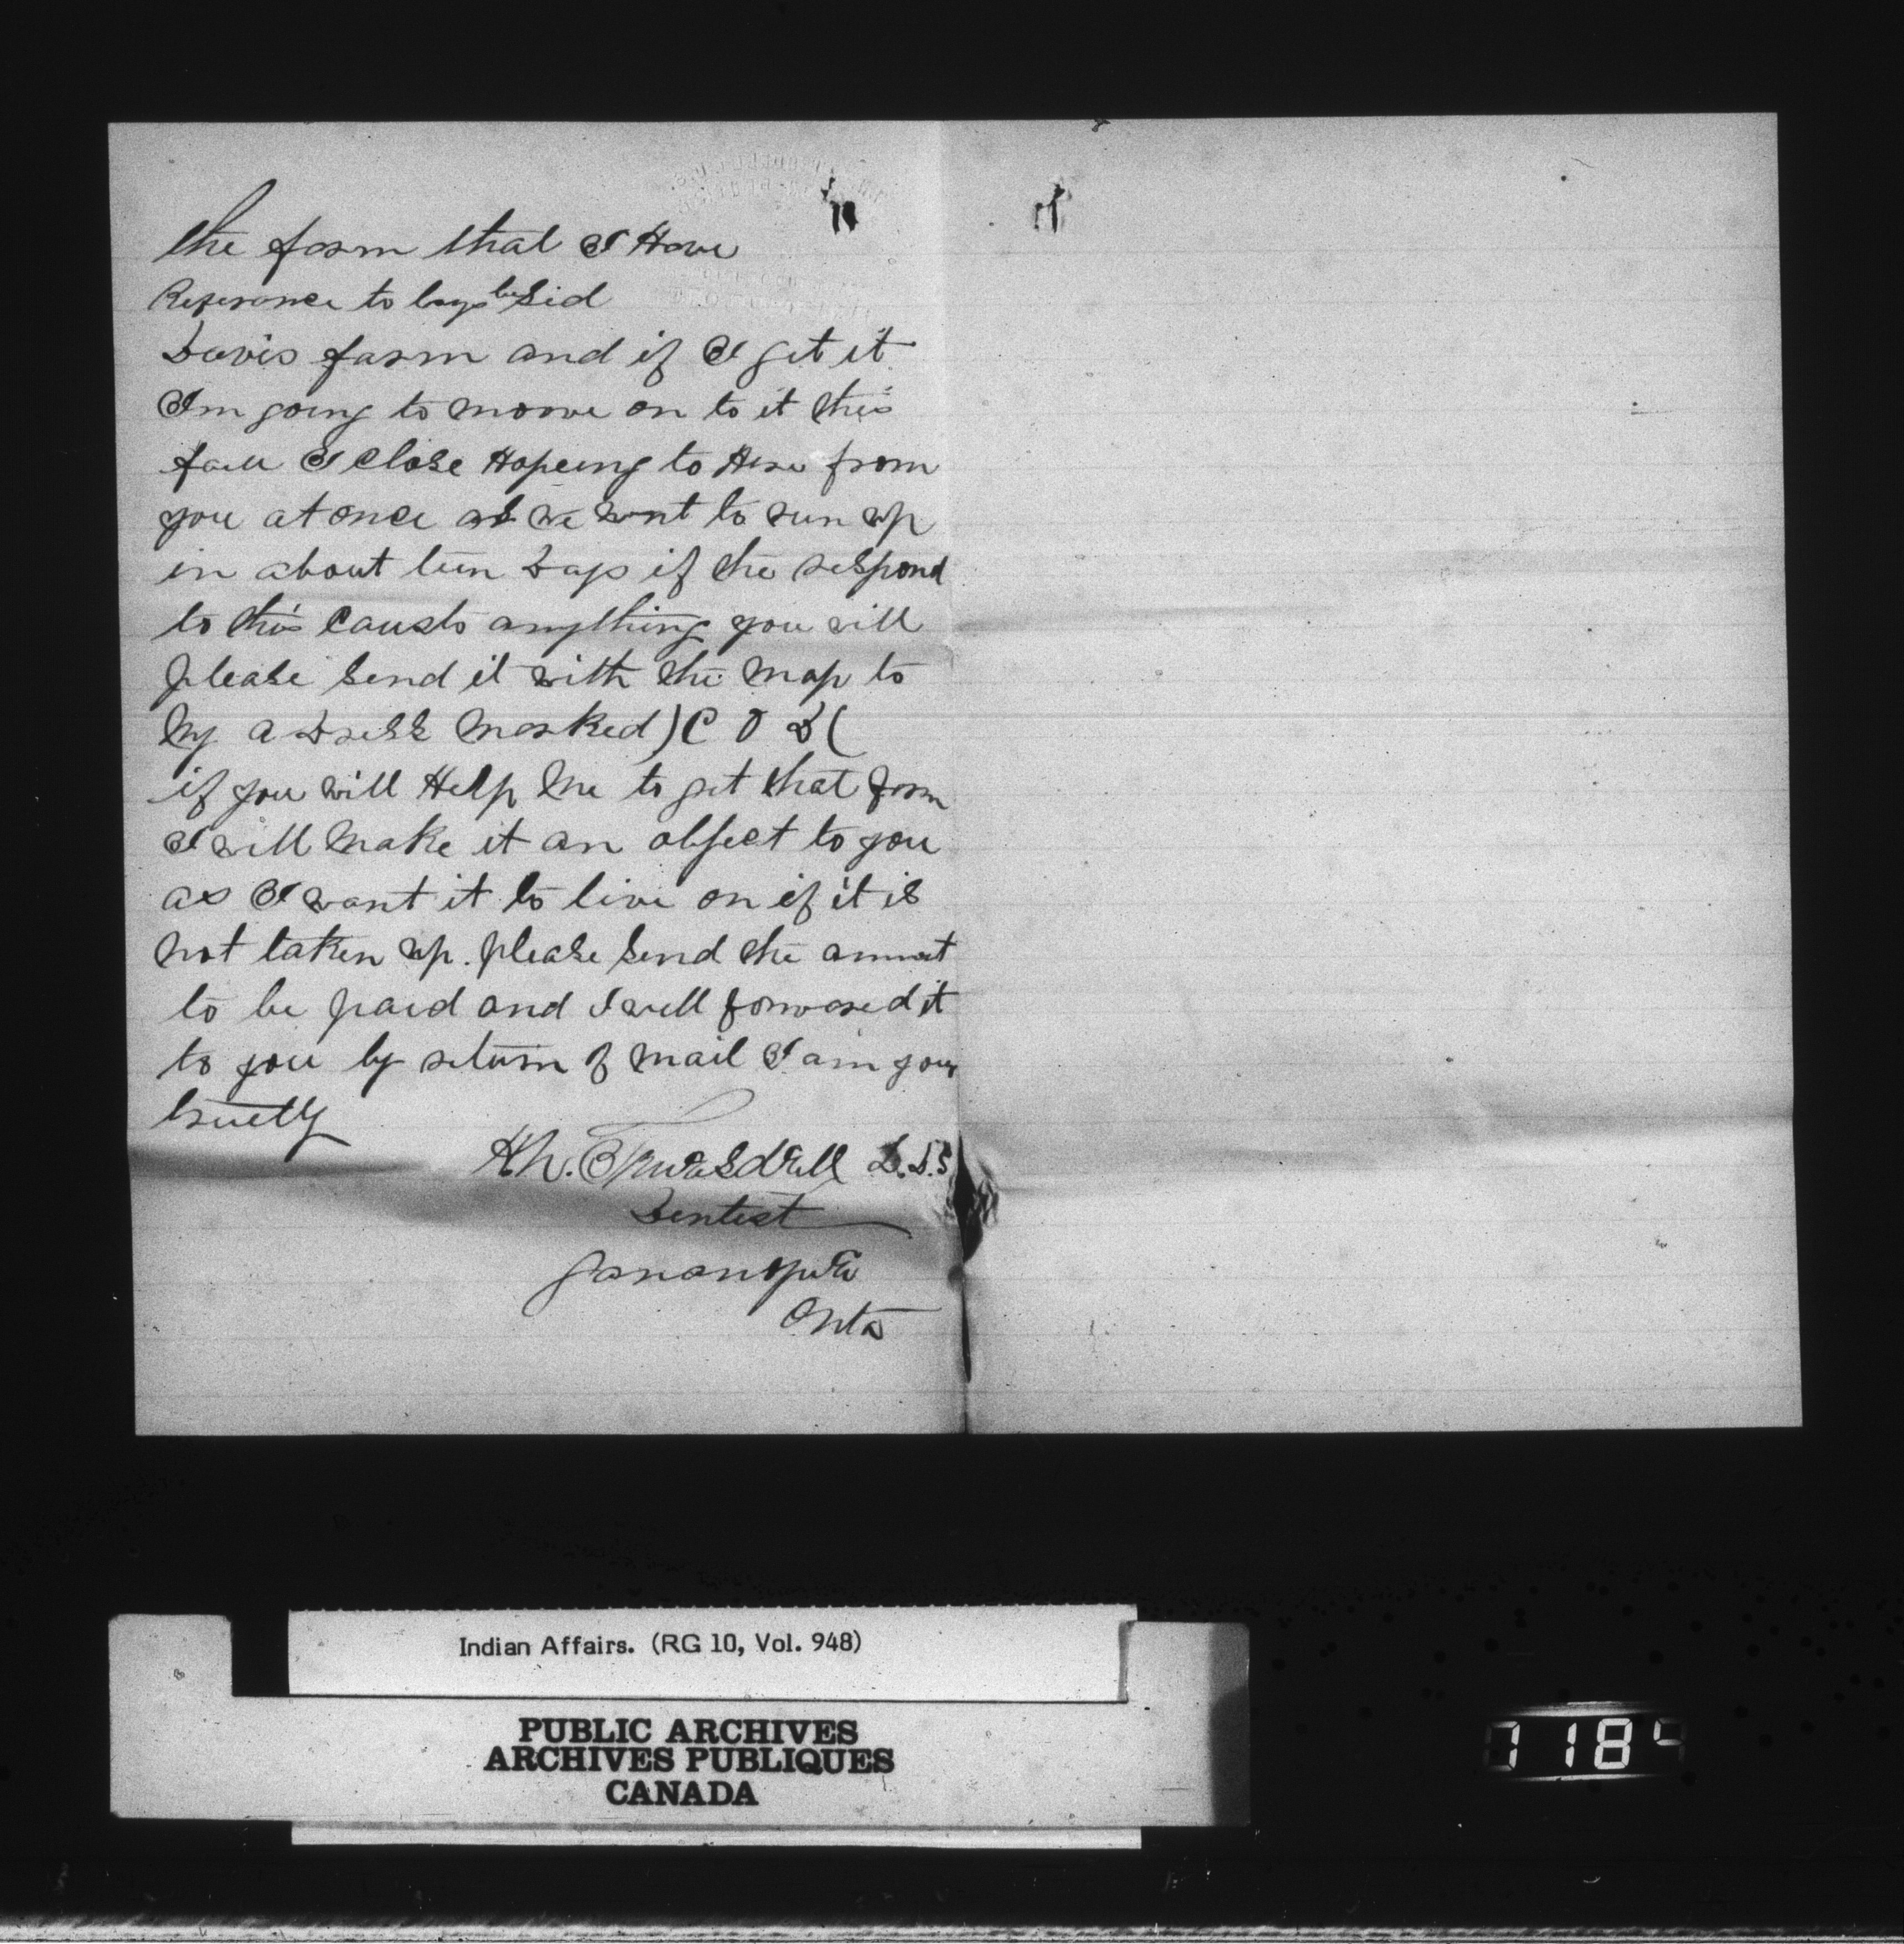 the farm that I Have
Referance to lays be Sid
Davis farm and if I get it
I'm going to moove on to it this
fall I Close Hopeing to Here from
you at once as we want to run up
in about ten Days if the respond
to this Causts anything you will
please send it with the map to
my adress marked) C O D (
if you will Help me to get that farm
I will make it an object to you
as I want it to live on if it is
not taken up. please send the amunt
to be paid and I will forward it
to you by return of mail I am your
truelly
D.D.S
Dentist
Gananoque
Onta
Indian Affairs. (RG 10, Vol. 948)
PUBLIC ARCHIVES
ARCHIVES PUBLIQUES
CANADA
1184